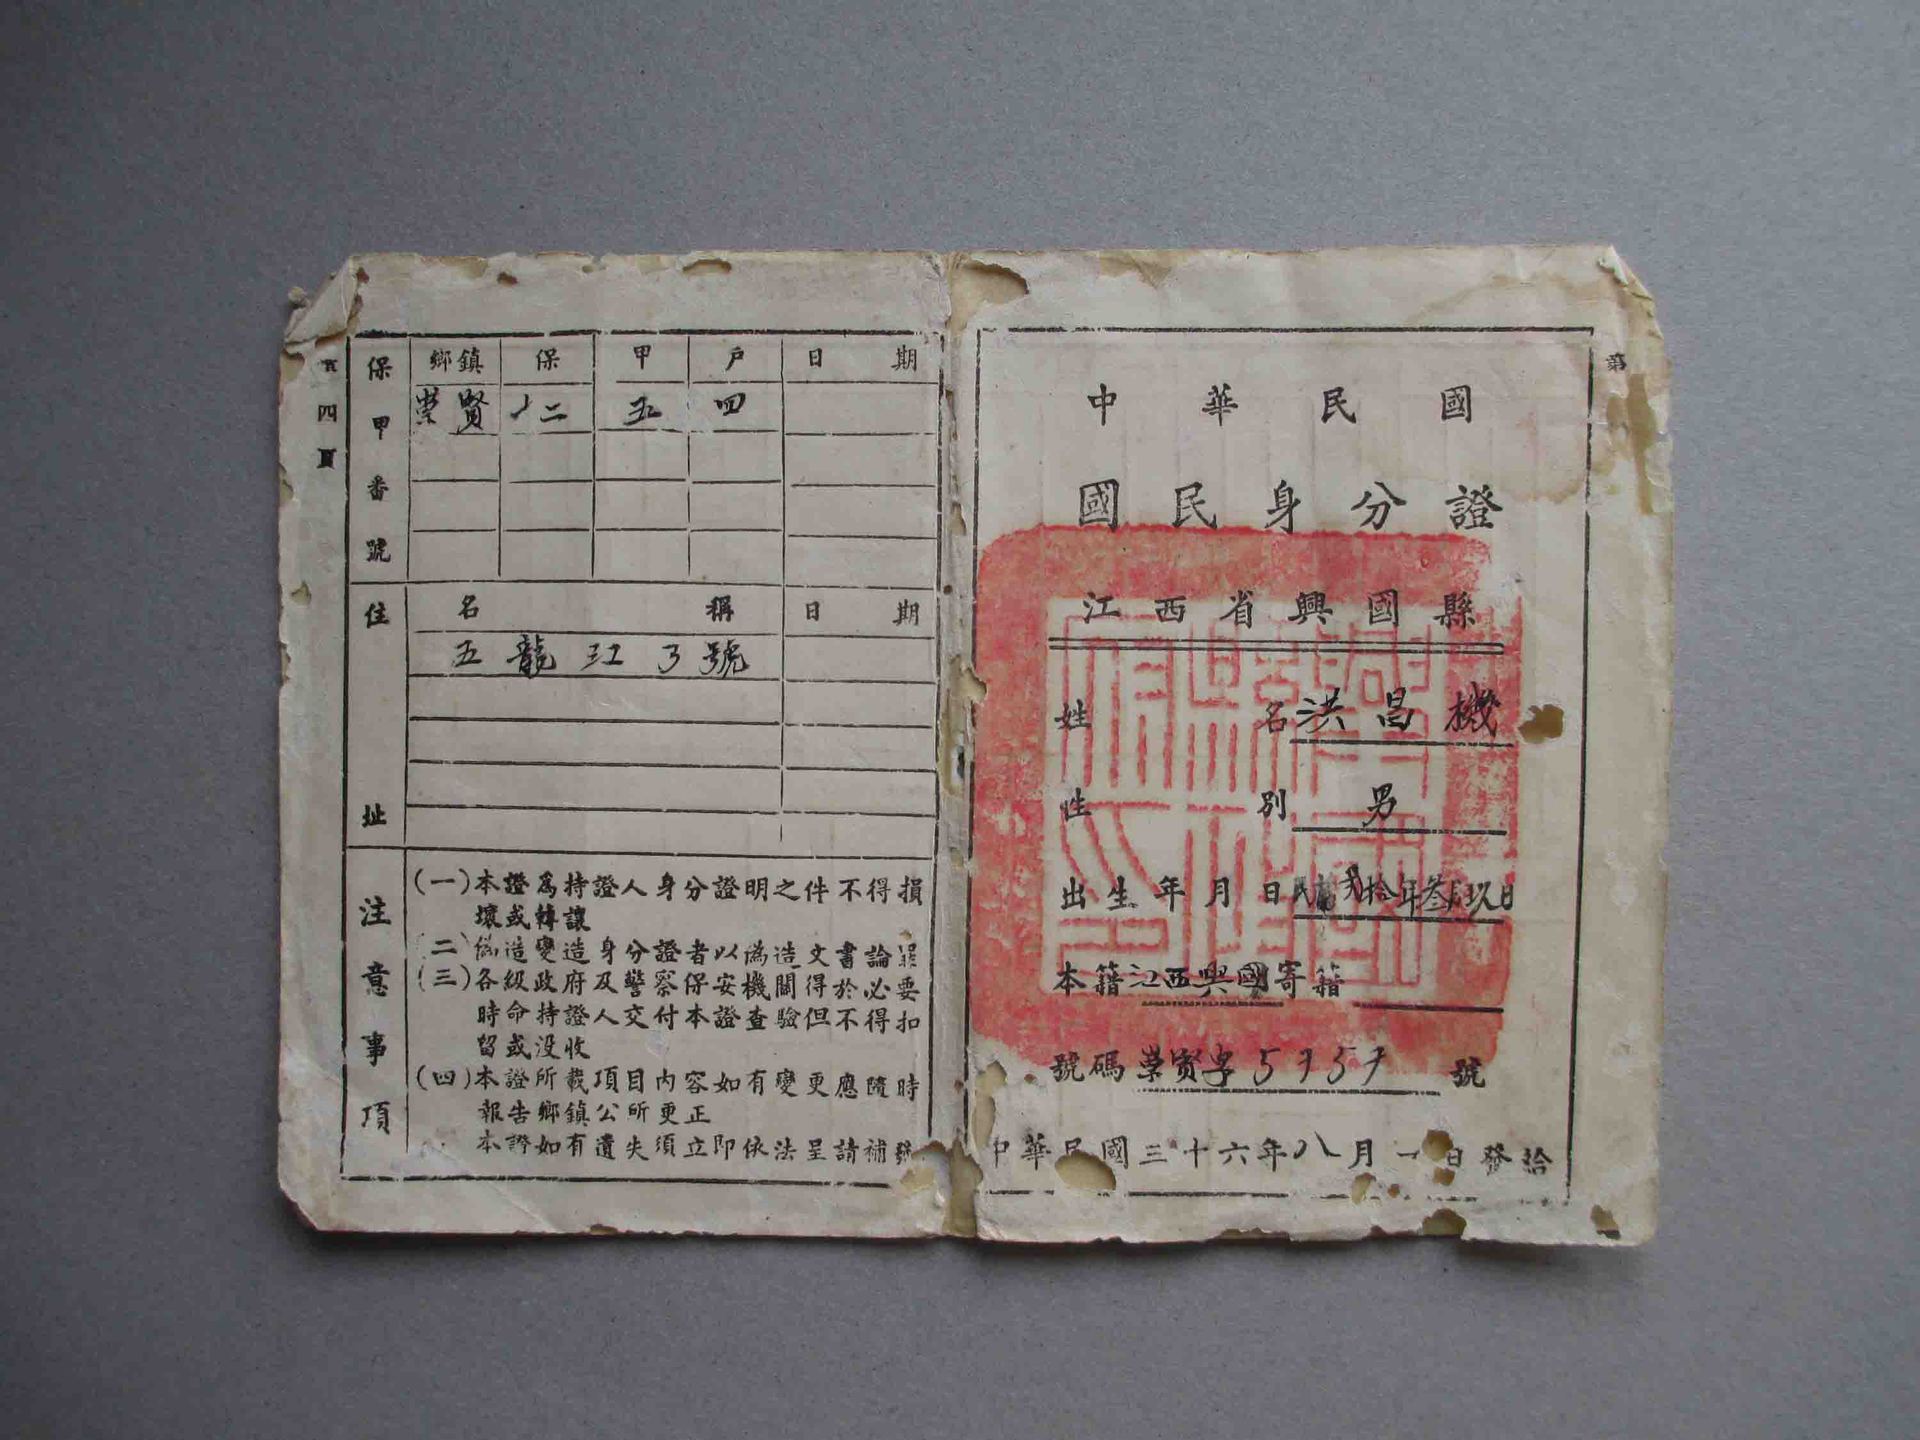 第
中華民國
國民身分證
江西省興國縣
姓名 洪昌機
性別 男
出生年月日 民國貳拾年叁月玖日
本籍 江西興國 寄籍
號碼 崇賢字 號
中華民國三十六年八月一日發給
第四頁
保甲番號
鄉鎮 保 甲 戶 日期
崇賢 五 四
住址
名稱 日期
五龍江 3 號
注意事項
(一)本證為持證人身分證明之件不得損
壞或轉讓
(二)偽造變造身分證者以偽造文書論罪
(三)各級政府及警察保安機關得於必要
時命持證人交付本證查驗但不得扣
留或沒收
(四)本證所載項目內容如有變更應隨時
報告鄉鎮公所更正
本證如有遺失須立即依法呈請補發